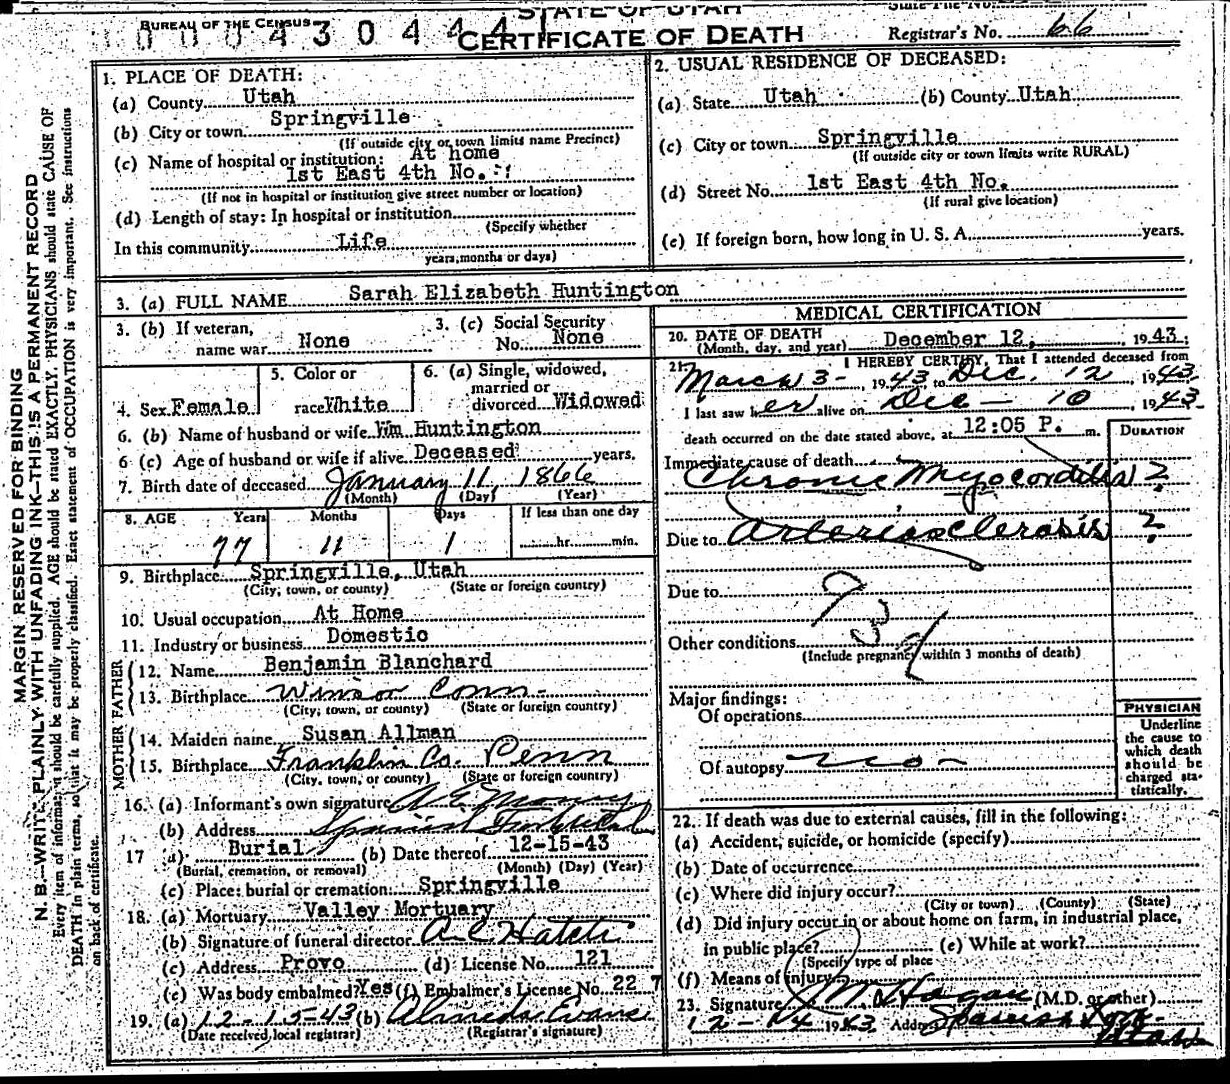 STATE OF UTAH
BUREAU OF THE CENSUS
000430444
CERTIFICATE OF DEATH
Registrar's No. 66
1. PLACE OF DEATH:
(a) County Utah
(b) City or town Springville
(If outside city or town limits name Precinct)
(c) Name of hospital or institution: At home
1st East 4th No.
(If not in hospital or institution give street number or location)
(d) Length of stay: In hospital or institution
(Specify whether
In this community Life
years, months or days)
2. USUAL RESIDENCE OF DECEASED:
(a) State Utah (b) County Utah
(c) City or town Springville
(If outside city or town limits write RURAL)
(d) Street No. 1st East 4th No.
(If rural give location)
(e) If foreign born, how long in U. S. A. years.
3. (a) FULL NAME Sarah Elizabeth Huntington
3. (b) If veteran, name war None
3. (c) Social Security No. None
4. Sex Female
5. Color or race White
6. (a) Single, widowed, married or divorced Widowed
6. (b) Name of husband or wife Wm Huntington
6 (c) Age of husband or wife if alive Deceased years.
7. Birth date of deceased January 11, 1866
(Month) (Day) (Year)
8. AGE Years Months Days If less than one day
77 11 1 hr. min.
9. Birthplace Springville, Utah
(City, town, or county) (State or foreign country)
10. Usual occupation At Home
11. Industry or business Domestic
FATHER
12. Name Benjamin Blanchard
13. Birthplace Winsor Conn
(City, town, or county) (State or foreign country)
MOTHER
14. Maiden name Susan Allman
15. Birthplace Franklin Co. Penn
(City, town, or county) (State or foreign country)
16. (a) Informant's own signature
(b) Address Spanish Fork Utah
17 (a) Burial (b) Date thereof 12-15-43
(Burial, cremation, or removal) (Month) (Day) (Year)
(c) Place: burial or cremation Springville
18. (a) Mortuary Valley Mortuary
(b) Signature of funeral director A C Hatch
(c) Address Provo (d) License No. 121
(e) Was body embalmed? Yes (f) Embalmer's License No. 22 7
19. (a) 12-15-43 (b) Almeda Evans
(Date received local registrar) (Registrar's signature)
MEDICAL CERTIFICATION
20. DATE OF DEATH December 12, 1943
(Month, day, and year)
21. I HEREBY CERTIFY, That I attended deceased from
March 3 - , 1943 to Dec. 12 1943
I last saw her alive on Dec - 10 , 1943
death occurred on the date stated above, at 12:05 P. m.
DURATION
Immediate cause of death
Chronic Myocorditis ?
Due to Arteriosclerosis ?
Due to
93d
Other conditions
(Include pregnancy within 3 months of death)
Major findings:
Of operations
Of autopsy no -
PHYSICIAN
Underline
the cause to
which death
should be
charged sta-
tistically.
22. If death was due to external causes, fill in the following:
(a) Accident, suicide, or homicide (specify)
(b) Date of occurrence
(c) Where did injury occur?
(City or town) (County) (State)
(d) Did injury occur in or about home on farm, in industrial place,
in public place? (e) While at work?
(Specify type of place
(f) Means of injury
23. Signature Hagan (M.D. or other)
12-14 1943 Address Spanish Fork
Utah
MARGIN RESERVED FOR BINDING
N. B.—WRITE PLAINLY WITH UNFADING INK—THIS IS A PERMANENT RECORD
Every item of information should be carefully supplied. AGE should be stated EXACTLY. PHYSICIANS should state CAUSE OF
DEATH in plain terms, so that it may be properly classified. Exact statement of OCCUPATION is very important. See instructions
on back of certificate.